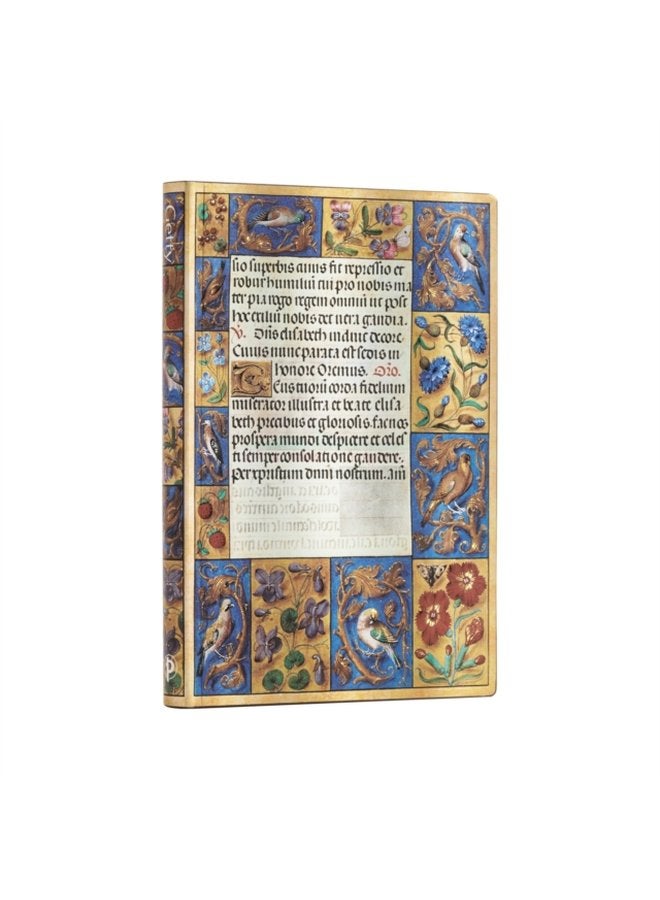 sio superbis cuius fit repressio et
robur humiliū cui pro nobis ma
ter pia rogo regem omniū ut post
hoc exiliū nobis det uera gaudia.
V. Dn̄s elisabeth induit decore.
Cuius nunc parata est sedis in
honore Oremus. Orō.
Eus tuorū corda fidelium
miserator illustra et beate elisa
beth precibus et gloriosis. fac nos
prospera mundi despicere et celes
ti semper consolatione gaudere.
Per xp̄istum dn̄m nostrum. am̄